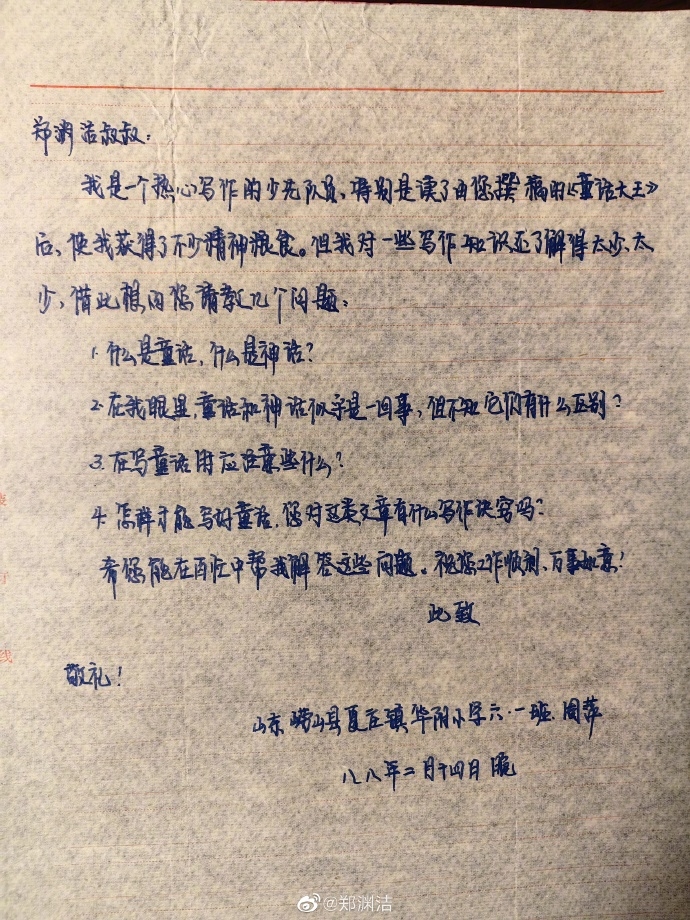 郑渊洁叔叔:
我是一个热心写作的少先队员,特别是读了由您撰稿的《童话大王》
后,使我获得了不少精神粮食。但我对一些写作知识还了解得太少、太
少,借此想向您请教几个问题:
1. 什么是童话,什么是神话?
2. 在我眼里童话和神话似乎是一回事,但不知它们有什么区别?
3. 在写童话时应注意些什么?
4. 怎样才能写好童话,您对这类文章有什么写作诀窍吗?
希您能在百忙中帮我解答这些问题。祝您工作顺利、万事如意!
此致
敬礼!
山东崂山县夏庄镇华阴小学六·一班 周萍
八八年二月十四日晚
线
@郑渊洁